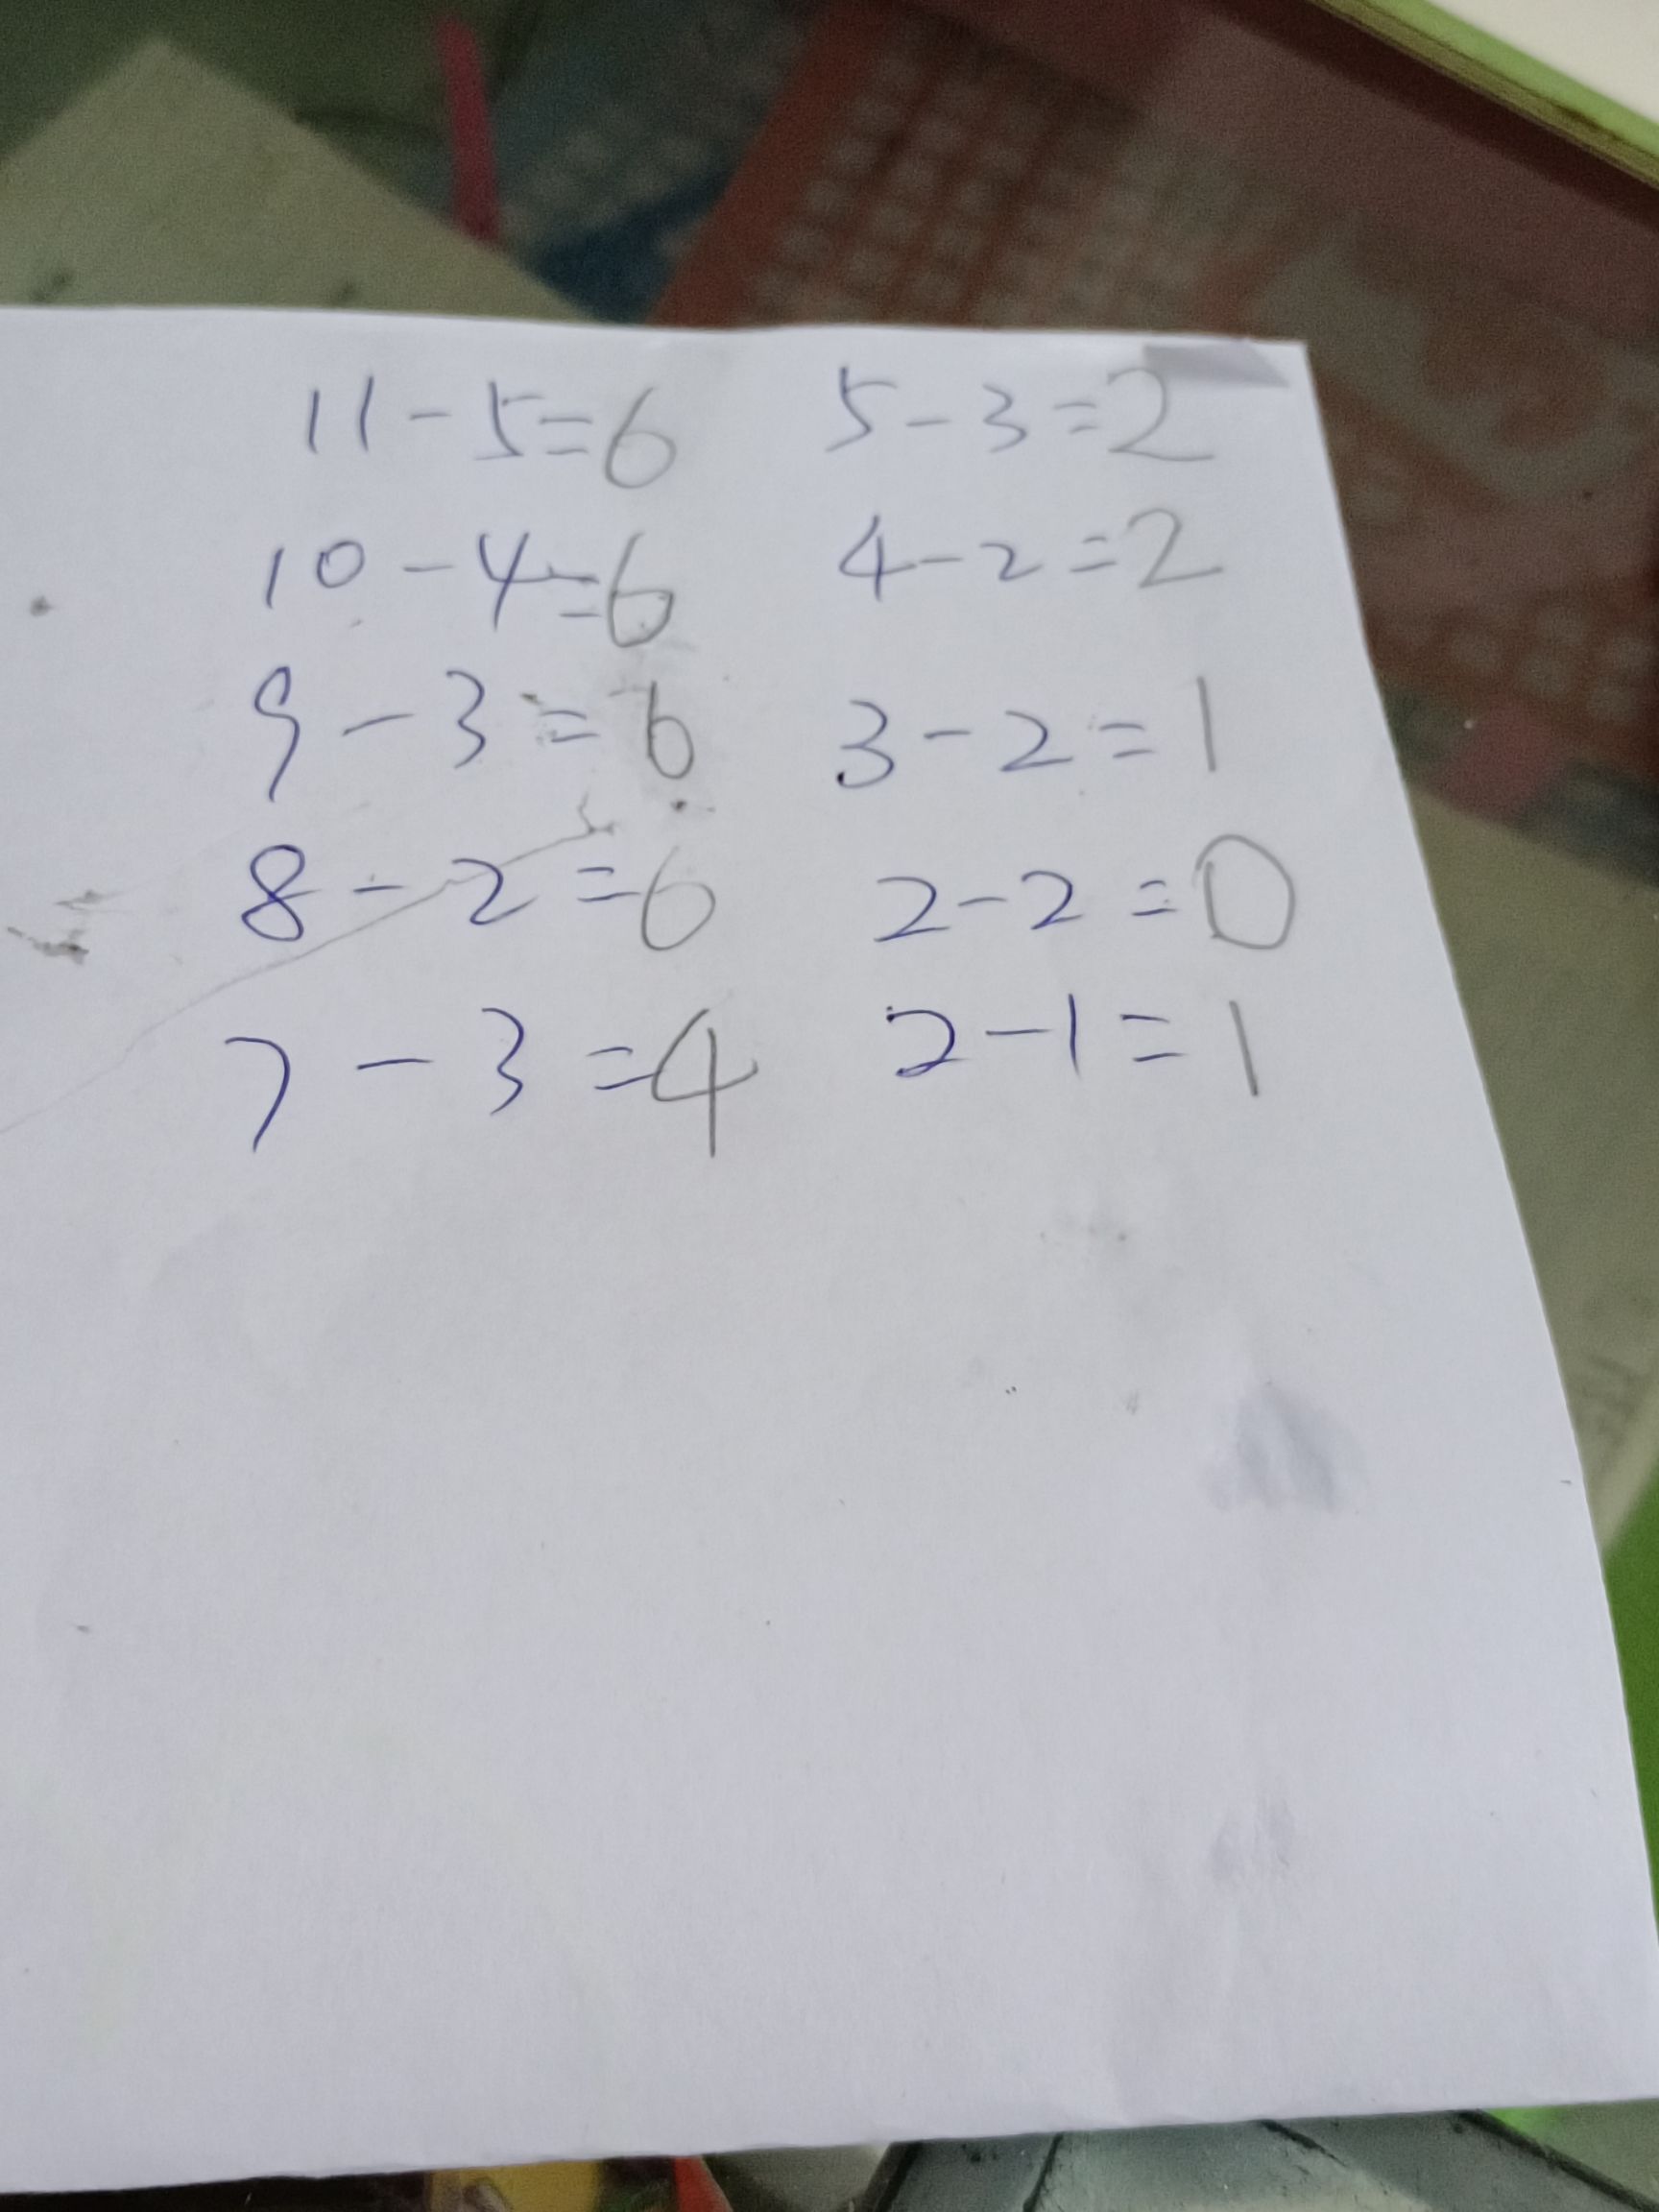 11-5=6 5-3=2
10-4=6 4-2=2
9-3=6 3-2=1
8-2=6 2-2=0
7-3=4 2-1=1